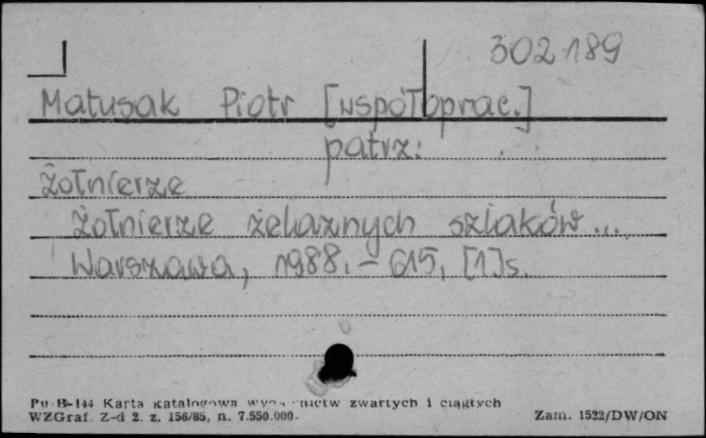 302189
Matusak Piotr [współoprac.]
patrz:
Żołnierze
Żołnierze żelaznych szlaków...
Warszawa, 1988. - 615, [1] s.
Pu-B-144 Karta katalogowa wydawnictw zwartych i ciągłych
WZGraf. Z-d 2. z. 156/85, n. 7.550.000. Zam. 1522/DW/ON